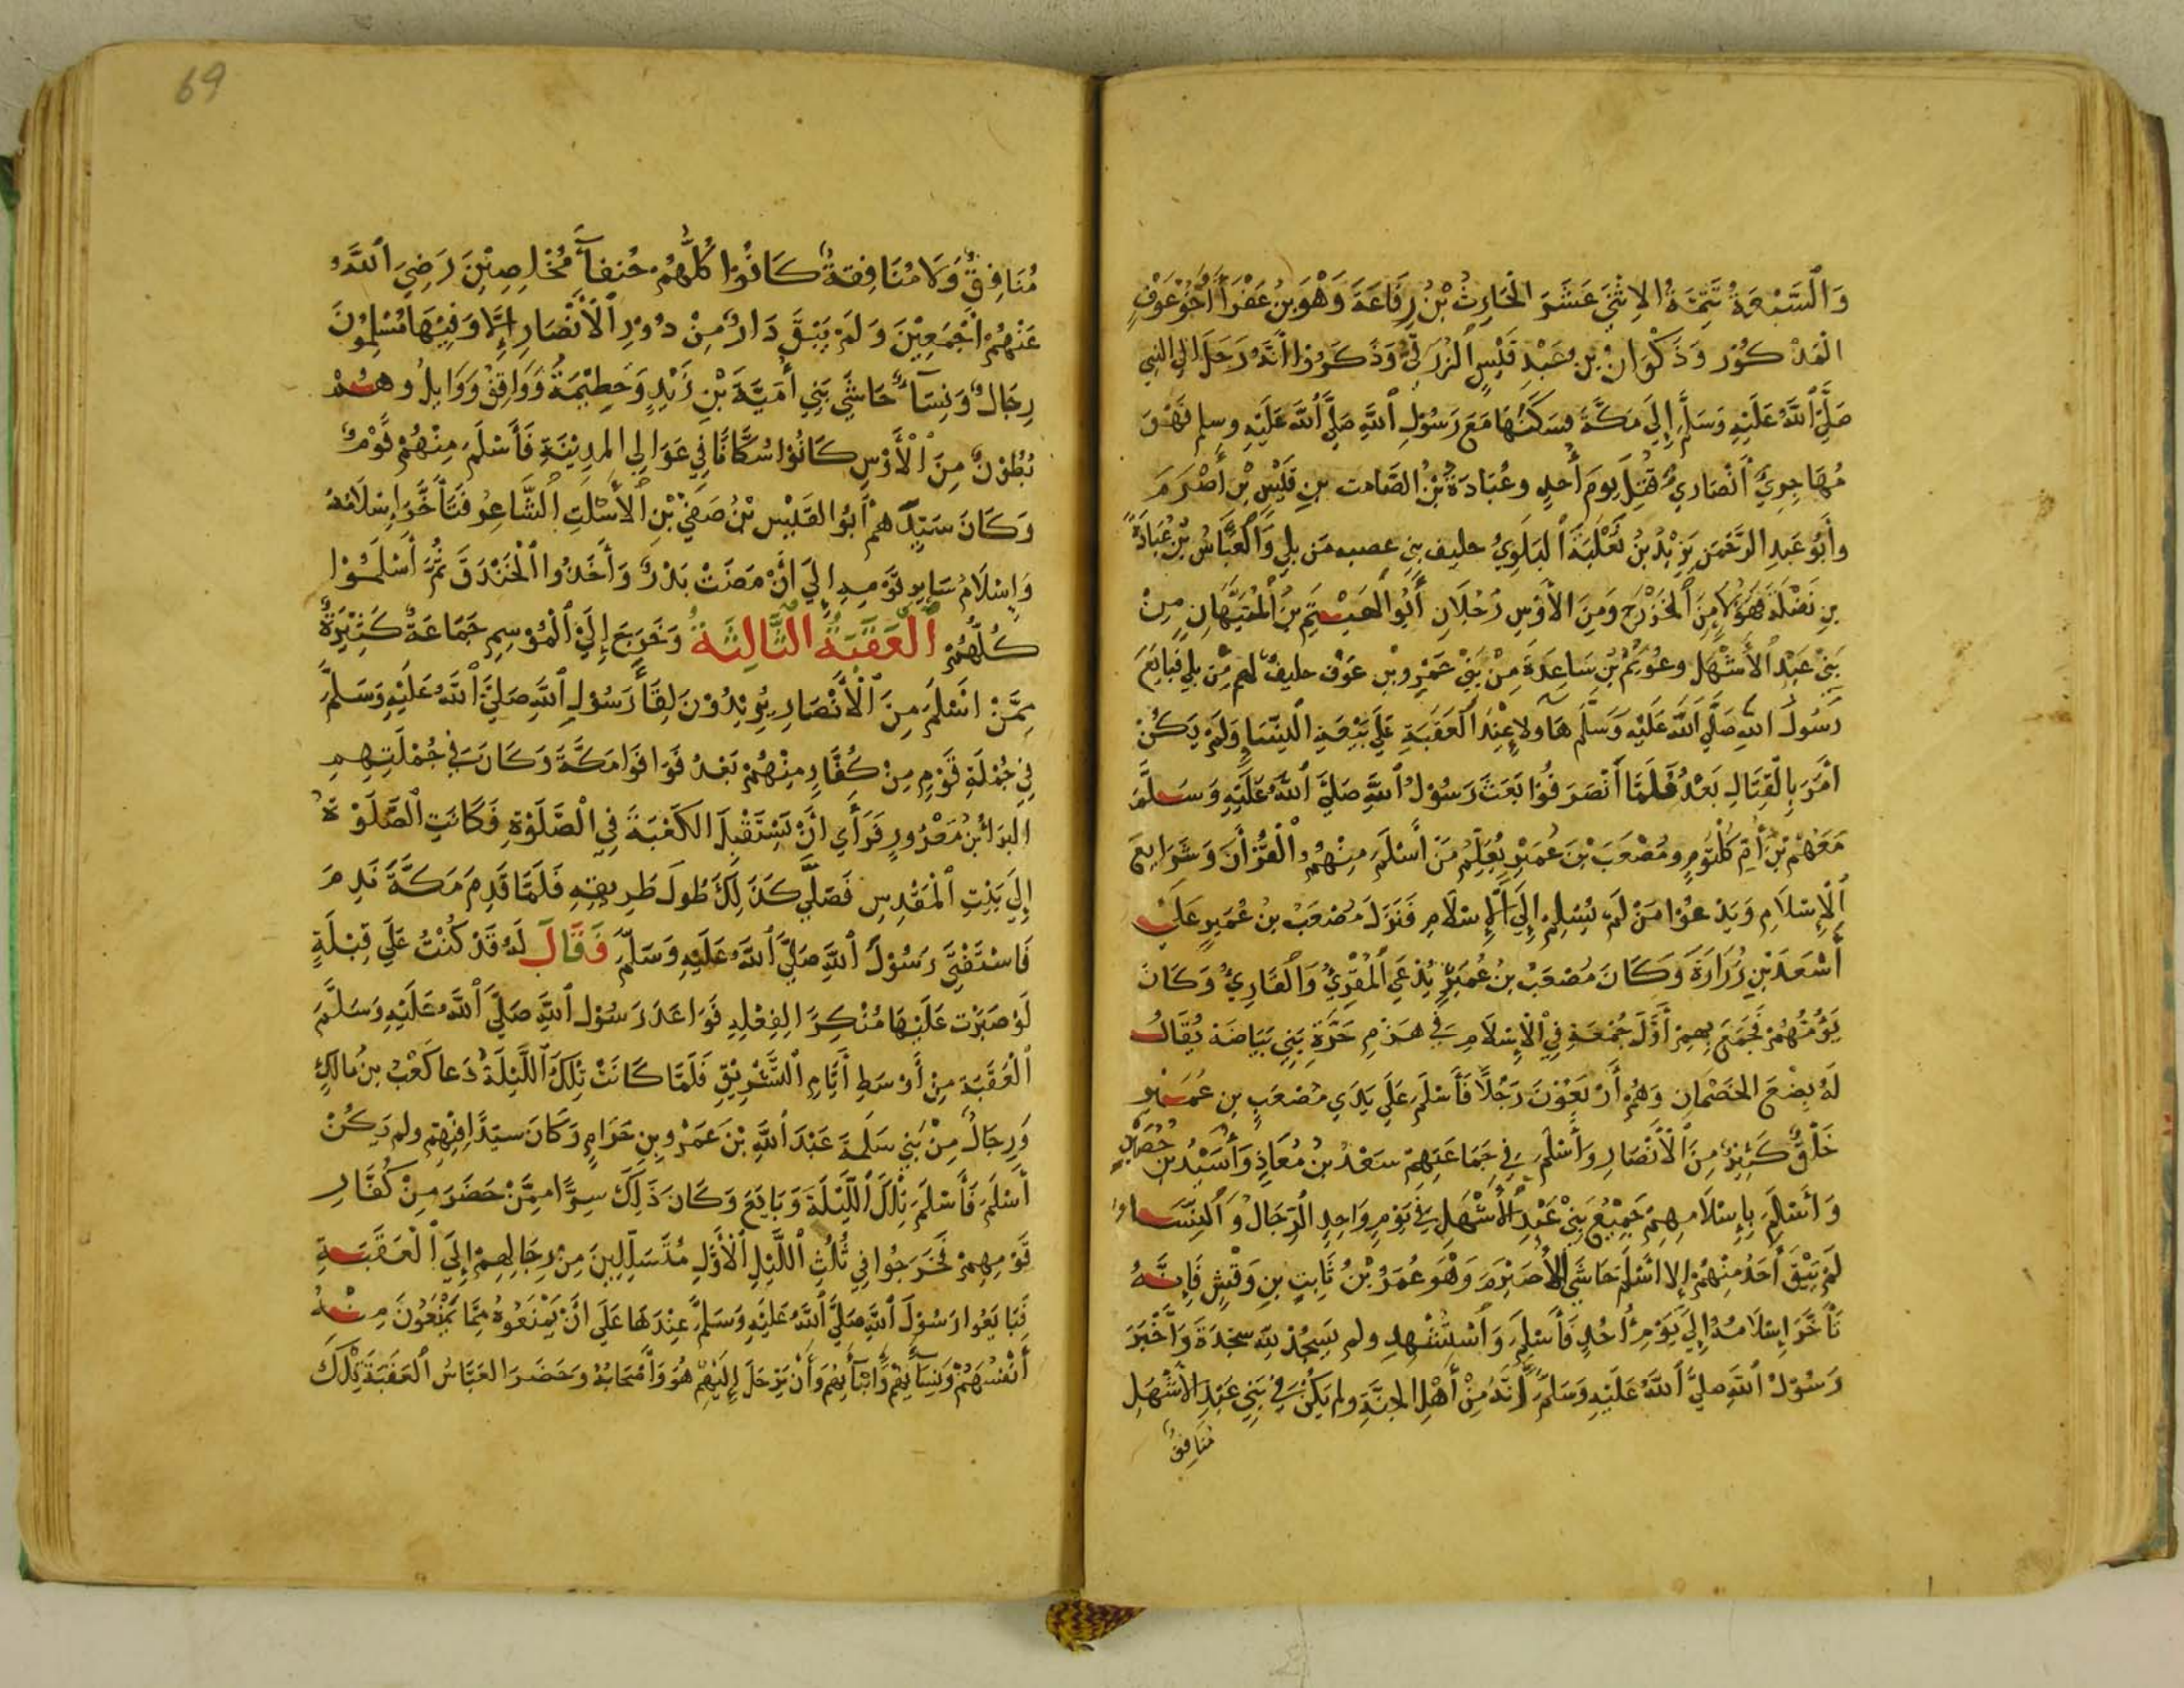 وَالسَّبْعَةُ تَتِمَّةُ الاِثْنَيْ عَشَرَ الْحَارِثُ بْنُ رِفَاعَةَ وَهْوَ بْنُ عَفْرَاءَ أَخُوْ عَوْفٍ
الْمَذْكُوْر وَذَكْوَانُ بْنِ عَبْدِ قَيْسٍ الزُّرَقِيُّ وَذَكَرُوْا أَنَّهُ رَحَلَ إلى النبي
صَلَّى اللَّهُ عَلَيْهِ وَسَلَّمَ إِلَيَ مَكَّةَ فسَكَنَهَا مَعَ رَسُوْلِ اللَّهِ صَلَّيَ اللَّهُ عَلَيْهِ وسلم فَهْوَ
مُهَاجِرِيٌّ أَنْصَارِيٌّ قُتِلَ يومَ أُحدٍ وعُبَادَةُ بْنُ الصَّامت بنِ قَيْسِ بْنِ أَصْرَمَ
وأَبُو عَبدِ الرَّحْمَنِ يَزِيْدُ بنُ ثَعْلَبَةَ الْبَلَوِيُّ حليف بني عصيه مَن بلي وَالْعَبَّاسُ بْنُ عُبَادَةَ
بنِ نَضْلَةَ فَهَؤُلاءِ مِنَ الْخَزْرَجِ وَمِنَ الْأَوْسِ رَجُلَانِ أَبُوْ الْهَيْثَمِ بنُ الْتَيَّهَانِ مِنْ
بَنِيْ عَبْدِ الْأَشْهَلِ وعُوَيْمُ بْنُ سَاعِدَةَ مِنْ بَنِيْ عَمْرِو بْنِ عَوْف حليفٌ لهم مِّنْ بلي فَبَايَعَ
رَسُولَ اللهِ صَلَّي اللَّهُ عَلَيْهِ وَسَلَّمَ هَاولاءِ عِنْدَ الْعَقَبَةِ عَلَي بَيْعَةِ النِّسَاءِ وَلَمْ يَكُنْ
أَمَرَ بِالْقِتَالِ بَعْدُ فَلَمَّا انْصَرَفُوْا بَعَثَ رَسُوْلُ اللَّهِ صَلَّيَ اللَّهُ عَلَيْهِ وَسَلَّمَ
مَعَهُمْ بْنَ أُمِّ كُلْثُوْمٍ ومُصْعَبَ بْنَ عُمَيْرٍ يُعَلِّمُ مَنْ أَسْلَمَ مِنْهُمُ الْقُرْأَنَ وَشَرَايِعَ
الْإِسْلَامِ وَيَدْعُوْا مَنْ لَمْ يُسْلِمْ إِلَيَ الْإِسْلَامِ فَنَزَلَ مُصْعَبُ بنُ عُمَيرٍ عَلَي
أَسْعَدَ بْنِ زُرَارَةَ وَكَانَ مُصْعَبُ بنُ عُمَيْرٍ يُدْعَي الْمُقْرِيُّ وَالْقَارِيُّ وَكَانَ
يَؤُمُّهُمْ فَجَمَعَ بِهِمْ أَوَّلَ جُمْعَةٍ فِي الْإِسْلَامِ فِي هَزْمِ حَرَّةِ بَنِي بَيَاضَة يُقَالُ
لَهُ بِضْعَ الخَضْمَانِ وَهُمْ أَرْبَعُوْنَ رَجُلًا فَأَسْلَمَ عَلَي يَدَيِ مُصْعَبِ بنِ عُمَيْرٍ
خَلْقٌ كَثِيْرٌ مِنَ الْأَنْصَارِ وَأَسْلَمَ فِي جَمَاعَتِهِمْ سَعْدُ بنُ مُعَاذٍ وَأُسَيْدُ بْنُ حُضَيْرٍ
وَأَسْلَمَ بِإِسْلَامِهِمْ جَمِيْعُ بَنِيْ عَبْدِ الْأَشْهَلِ فِي يَوْمٍ وَاحِدٍ الرِّجَالُ وَ النِّسَاءُ
لَمْ يَبْقَ أَحَدٌ مِنْهُمْ إلا اسْلَمَ حَاشَي الْأُصَيْرِمَ وَهْوَ عُمَرُ بْنُ ثَابِتِ بنِ وَقْشٍ فَإِنَّهُ
تَأَخَّرَ إِسْلَامُهُ إِلَيَ يَوْمِ أُحُدٍ فَأَسْلَمَ وَاسْتُشْهِدَ ولم يَسْجُدْ للَّهِ سجْدَةً وَأَخْبَرَ
رَسُوْلُ اللَّهِ صليَّ اللَّهُ عَلَيْهِ وَسَلَّمَ أَنَّهُ مِنْ أَهْلِ الجنَّةِ ولم يَكُنْ فِيْ بَنِي عَبْدِ الْأَشْهَلِ
مُنَافِقٌ
69
مُنَافِقٌ وَلَا مُنَافِقةٌ كَانُوْا كُلُّهُمْ حُنفآءَ مُخْلِصِيْنَ رَضِيَ اللَّهُ
عَنْهُمْ أَجْمَعِيْنَ وَلَمْ يَبْقَ دَارٌ مِنْ دُوْرِ الْأَنْصَارِ إِلَّا وَفِيْهَا مُسْلِمُوْنَ
رِجَالٌ وَنِسَآءٌ حَاشَي بَنِي أُمَيَّةَ بْنِ زَيْدٍ وَخَطِيْمَةُ وَوَاقِفُ وَوَايِلُ وهُمْ
بُطُوْنٌ مِنَ الْأَوْسِ كَانُوْا سُكَّانًا فِي عَوَالِي المدِيْنَةِ فَأَسْلَمَ مِنْهُمْ قَوْمٌ
وَكَانَ سَيِّدَهُمْ أَبُوْ القَيْسِ بْنُ صَيْفِيْ بْنِ الْأَسْلَتِ الشَّاعِرُ فَتَأَخَّرَ إِسْلَامُهُ
وَإِسْلَامُ سَايِرِ قَوْمِهِ إِلَيَ أَنْ مَضَتْ بَدْرٌ وَأُحُدٌ وَالْخَنْدَقَ ثُمَّ أَسْلَمُوْا
كُلُّهُمْ الْعَقَبَةُ الثَّالِثَةُ وَخَرَجَ إِلَيَ الْمُوْسِمِ جَمَاعَةٌ كَثِيْرَةٌ
مِمَّنْ اسْلَمَ مِنَ الْأَنْصَارِ يُرِيْدُوْنَ لِقَآءَ رَسُوْلِ اللَّهِ صَلَّيَ اللَّهُ عَلَيْهِ وَسَلَّمَ
فِيْ جُمْلَةِ قَوْمٍ مِنْ كُفَّارٍ مِنْهُمْ بَعْدُ فَوَافَوْا مَكَّةَ وَكَانَ فِيْ جُمْلَتِهِمِ
الْبَرَاءُ بْنُ مَعْرُورٍ فَرَأَي أَنْ يَسْتَقْبِلَ الكَعْبَةَ فِي الصَّلَوٰةِ فَكَانَتِ الصَّلَوٰةُ
إِلَيَ بَيْتِ الْمَقْدِسِ فَصَلَّي كَذَلِكَ طُولَ طَرِيقِهِ فَلَمَّا قَدِمَ مَكَّةَ نَدِمَ
فَاسْتَفْتَيَ رَسُوْلَ اللَّهِ صَلَّيَ اللَّهُ عَلَيْهِ وَسَلَّمَ فَقَالَ لَهُ قَدْ كُنْتُ عَلَي قِبْلَةٍ
لَوْ صَبَرْت عَلَيْهَا مُنْكِرًا لِفِعْلِهِ فَوَاعَدَ رَسُوْل اللَّهِ صَلَّيَ اللَّهُ عَلَيْهِ وَسَلَّمَ
الْعَقَبَةَ مِنْ أَوْسَطِ أَيَّامِ التَّشْرِيْقِ فَلَمَّا كَانَتْ تِلْكَ اللَّيْلَةُ دَعَا كَعْبُ بنُ مالكٍ
وَرِجَالٌ مِنْ بَنِي سَلَمةَ عَبْدَ اللَّهِ بْنَ عَمْرِو بنِ حَرَامٍ وَكَانَ سيِّدًا فِيْهِمْ ولم يَكُنْ
أَسْلَمَ فَأَسْلَمَ تِلْكَ اللَّيْلَةَ وَبَايَعَ وَكَانَ ذَلِكَ سِرًّا مِمَّنْ حَضَرَ مِنْ كُفَّارِ
قَوْمِهِمْ فَخَرَجُوا فِي ثُلُثِ اللَّيْلِ الْأَوَّلِ مُتَسَلِّلِينَ مِنْ رِحَالِهِمْ إِلَيَ الْعَقَبَةِ
فَبَايَعُوا رَسُوْلَ اللَّهِ صَلَّيَ اللَّهُ عَلَيْهِ وَسَلَّمَ عِنْدَهَا عَلَي أَنْ يَمْنَعُوْهُ مِمَّا يَمْنَعُوْنَ مِنْهُ
أَنْفُسَهُمْ وَنِسَآءَهُمْ وَأَبْنَآءَهُمْ وَأَنْ يَرْحَلَ إِلَيْهِمْ هُوَ وَأَصْحَابُهُ وَحَضَرَ العَبَّاسُ الْعَقَبَةَ تِلْكَ